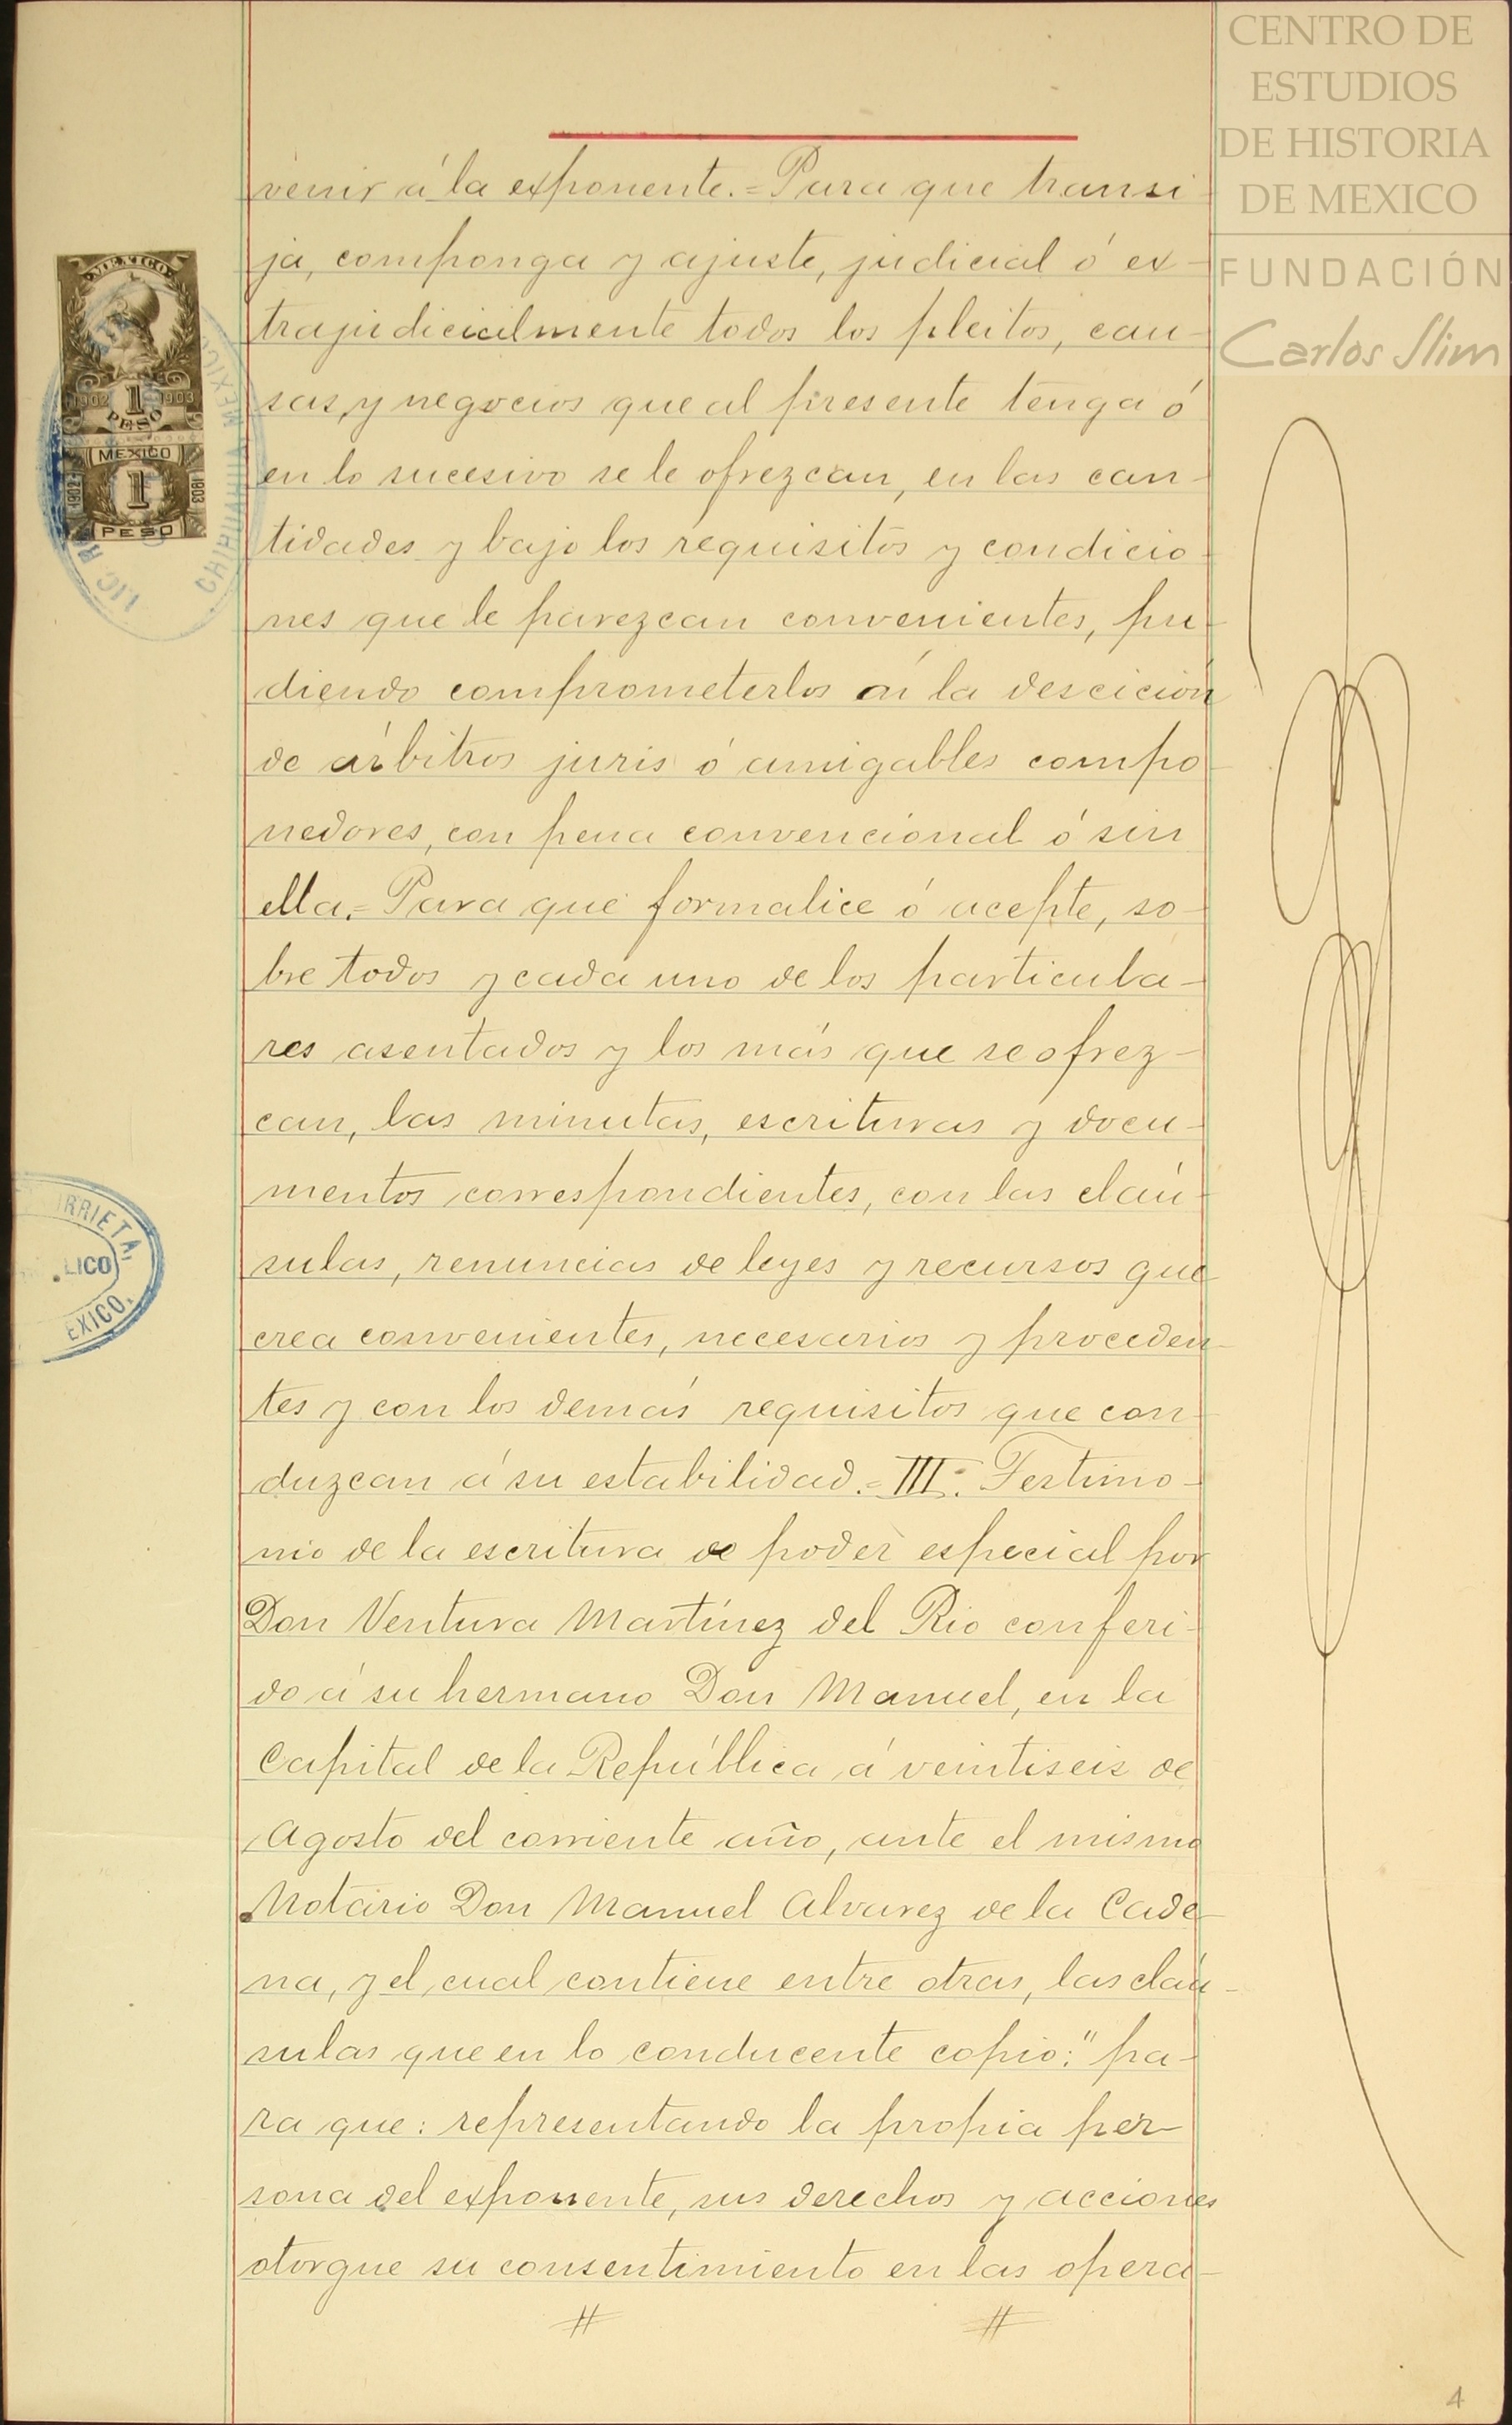 CENTRO DE
ESTUDIOS
DE HISTORIA
DE MEXICO
FUNDACIÓN
Carlos Slim
venir á la exponente.=Para que transi
ja, componga y ajuste, judicial ó ex-
trajudicialmente todos los pleitos, cau-
sas, y negocios que al presente tenga ó
en lo sucesivo se le ofrezcan, en las can-
tidades y bajo los requisitos y condicio-
nes que le parezcan convenientes, pu-
diendo comprometerlos á la descición
de árbitros juris ó amigables compo-
nedores, con pena convencional ó sin
ella.=Para que formalice ó acepte, so-
bre todos y cada uno de los particula-
res asentados y los más que se ofrez-
can, las minutas, escrituras y docu-
mentos correspondientes, con las claú-
sulas, renuncias de leyes y recursos que
crea convenientes, necesarios y proceden-
tes y con los demás requisitos que con-
duzcan á su estabilidad.=III.=Testimo-
nio de la escritura de poder especial por
Don Ventura Martínez del Rio conferi-
do á su hermano Don Manuel, en la
Capital de la República á veintiseis de
Agosto del corriente año, ante el mismo
Notario Don Manuel Alvarez de la Cade-
na, y el cual contiene entre otras, las claú-
sulas que en lo conducente copio:" pa-
ra que: representando la propia per-
sona del exponente, sus derechos y acciones
otorgue su consentimiento en las opera-
# #
MEXICO
1902 1 1903
PESO
MEXICO
1902 1 1903
PESO
LIC. R
CHIHUAHUA MEXICO
IRRIETA.
LICO
EXICO.
4